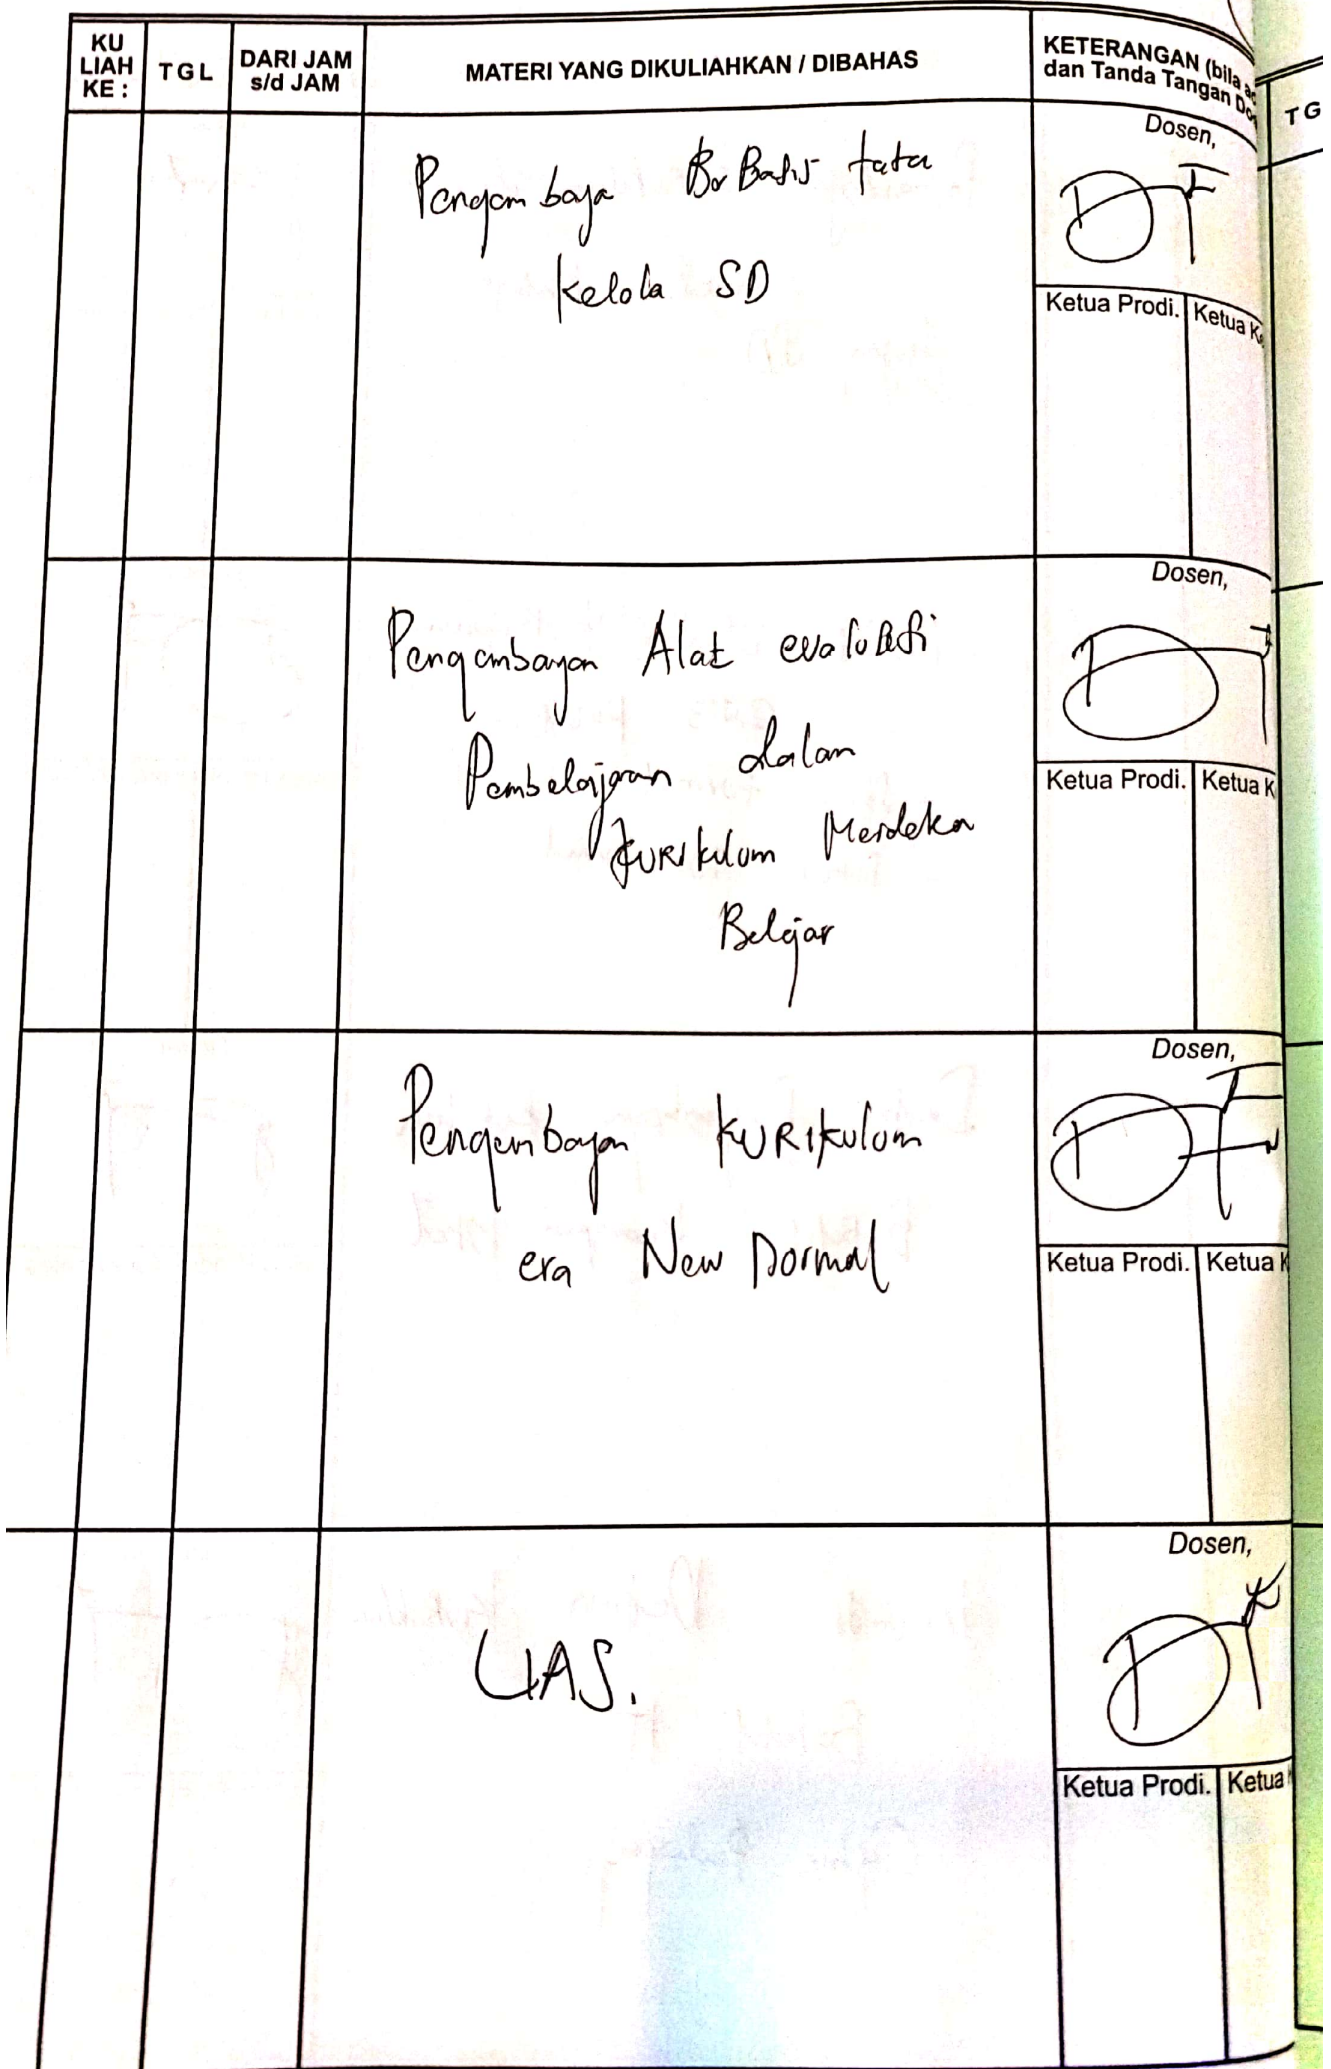 KU
LIAH
KE :
TGL
DARI JAM
s/d JAM
MATERI YANG DIKULIAHKAN / DIBAHAS
KETERANGAN (bila
dan Tanda Tangan
TG
Dosen,
Pengembaya Ber Basis tata
Kelola SD
Ketua Prodi.
Ketua
Dosen,
Pengembayan Alat evaluasi
Pembelajaran dalam
Kurikulum Merdeka
Belajar
Ketua Prodi.
Ketua K
Dosen,
Pengembayan KURIkulum
era New Normal
Ketua Prodi.
Ketua K
Dosen,
UAS.
Ketua Prodi.
Ketua